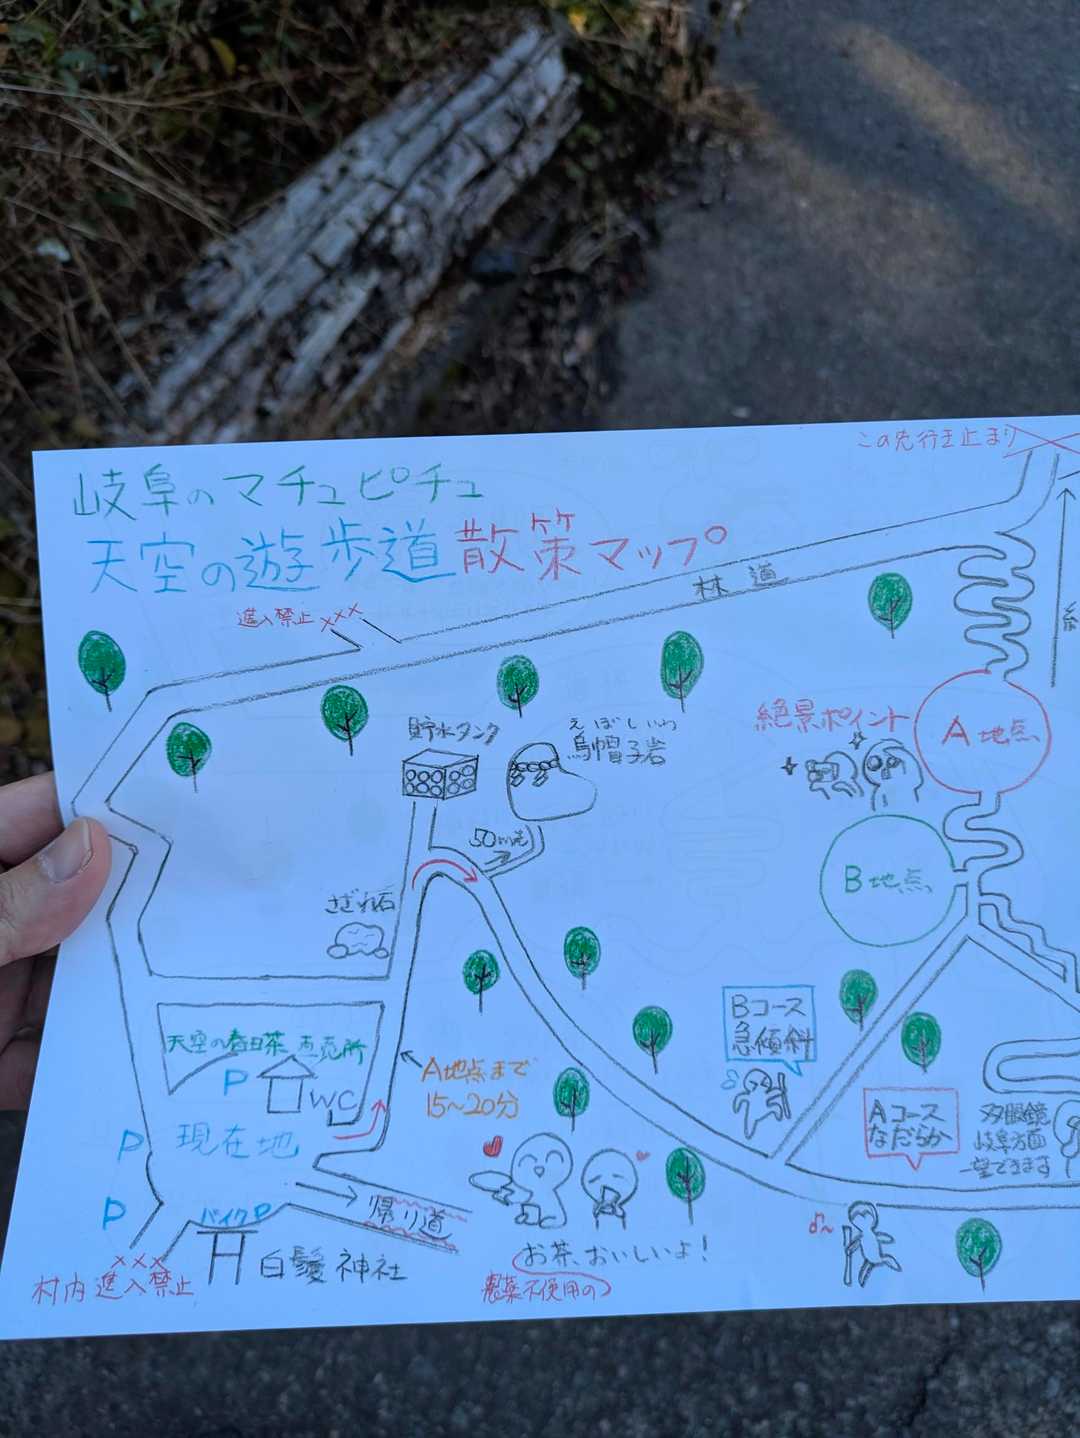 この先行き止まり
岐阜のマチュピチュ
天空の遊歩道散策マップ
林道
進入禁止×××
絶景ポイント
A地点
貯水タンク
えぼしいわ
烏帽子岩
50m先
B地点
さざれ石
Bコース
急傾斜
天空の春日茶直売所
P
WC
A地点まで
15〜20分
Aコース
なだらか
双眼鏡
岐阜方面
一望できます
現在地
P
P
バイクP
帰り道
×××
村内進入禁止
白鬚神社
お茶、おいしいよ!
農薬不使用の